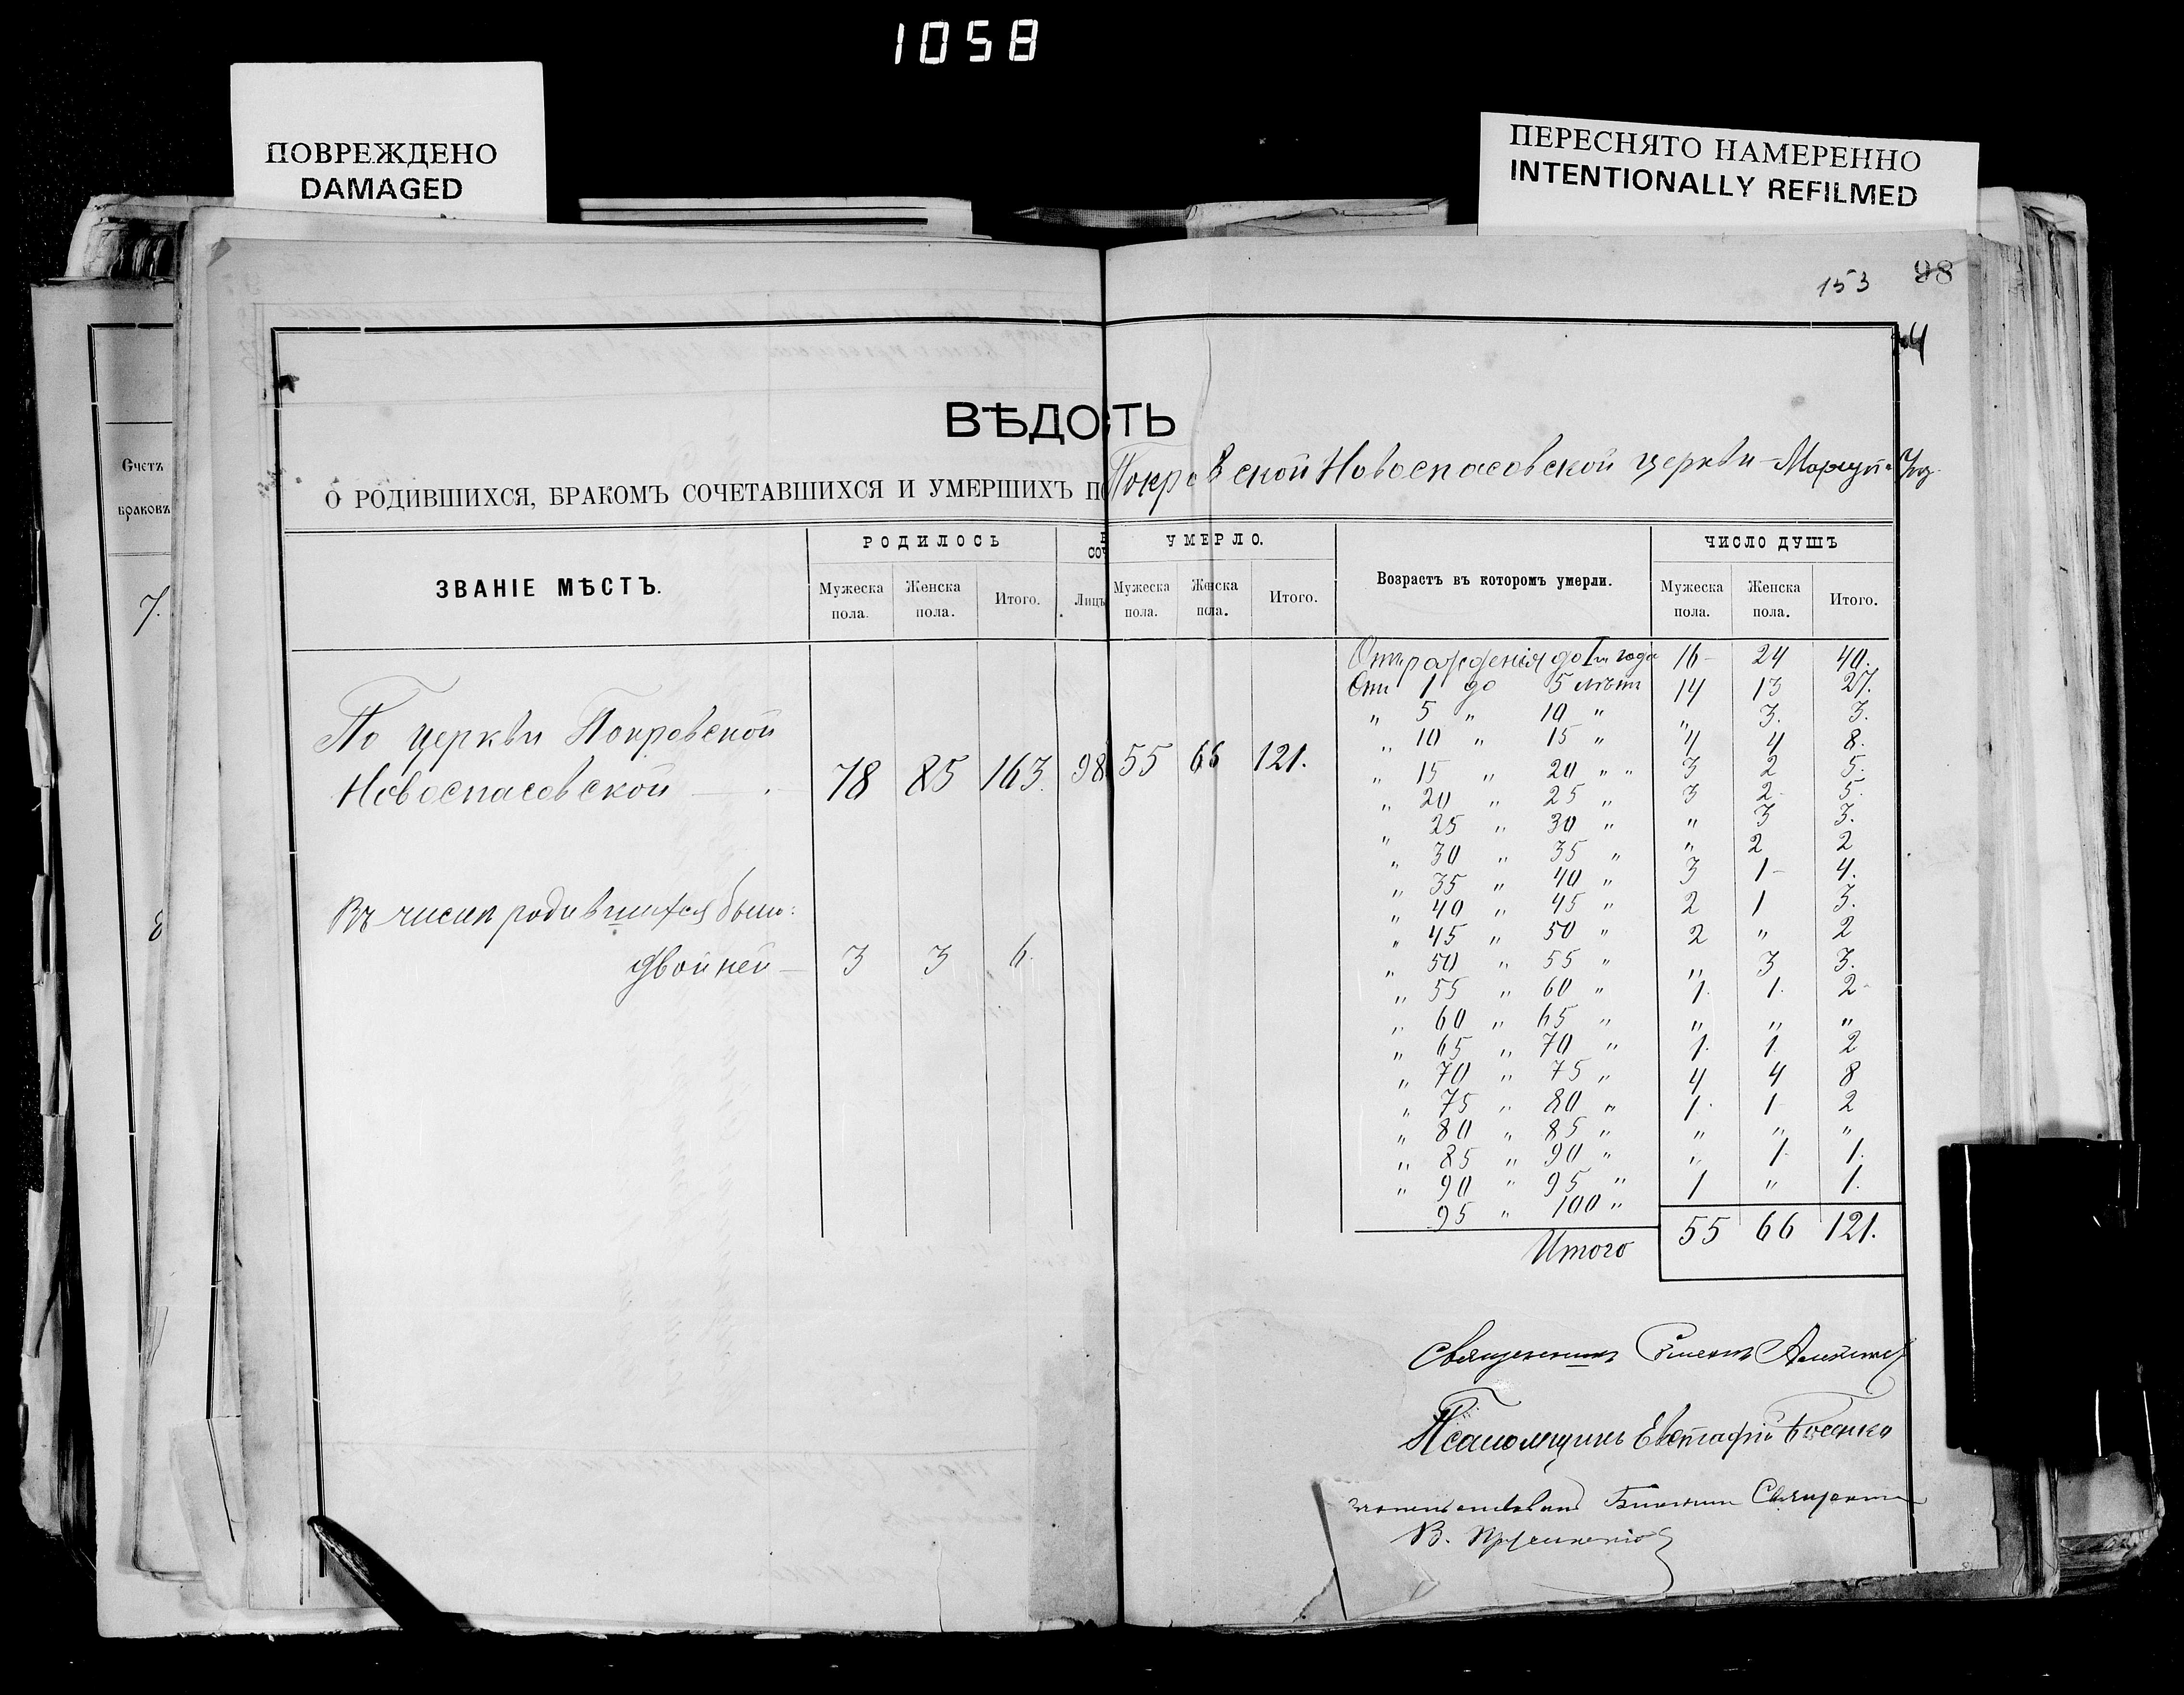 1058
ПОВРЕЖДЕНО
DAMAGED
ПЕРЕСНЯТО НАМЕРЕННО
INTENTIONALLY REFILMED
153 98
4
Счетъ
браковъ
7.
8
ВѢДО ТЬ
О РОДИВШИХСЯ, БРАКОМЪ СОЧЕТАВШИХСЯ И УМЕРШИХЪ ПО Покровской Новоспасовской церкви
ЗВАНІЕ МѢСТЪ. РОДИЛОСЬ СОЧ УМЕРЛО. Возрастъ въ которомъ умерли. ЧИСЛО ДУШЪ
Мужеска пола. Женска пола. Итого. Лицъ Мужеска пола. Женска пола. Итого. Мужеска пола. Женска пола. Итого.
По церкви Покровской
Новоспасовской 78 85 163. 98 55 66 121.
Въ числѣ родившихся было:
двойней 3 3 6.
Отъ рожденія до 1го года 16 24 40.
Отъ 1 до 5 лѣтъ 14 13 27.
„ 5 „ 10 „ „ 3. 3.
„ 10 „ 15 „ 4 4 8.
„ 15 „ 20 „ „ 3 2 5.
„ 20 „ 25 „ 3 2 5.
„ 25 „ 30 „ „ 3 3.
„ 30 „ 35 „ „ 2 2
„ 35 „ 40 „ 3 1 4.
„ 40 „ 45 „ 2 1 3.
„ 45 „ 50 „ 2 „ 2
„ 50 „ 55 „ „ 3 3.
„ 55 „ 60 „ 1. 1. 2
„ 60 „ 65 „ „ „ „
„ 65 „ 70 „ 1. 1. 2
„ 70 „ 75 „ 4 4 8
„ 75 „ 80 „ 1. 1 2
„ 80 „ 85 „ „ „ „
„ 85 „ 90 „ „ 1. 1.
„ 90 „ 95 „ 1 „ 1.
95 „ 100 „
Итого 55 66 121.
Священникъ
Псаломщикъ Евстафій
В.